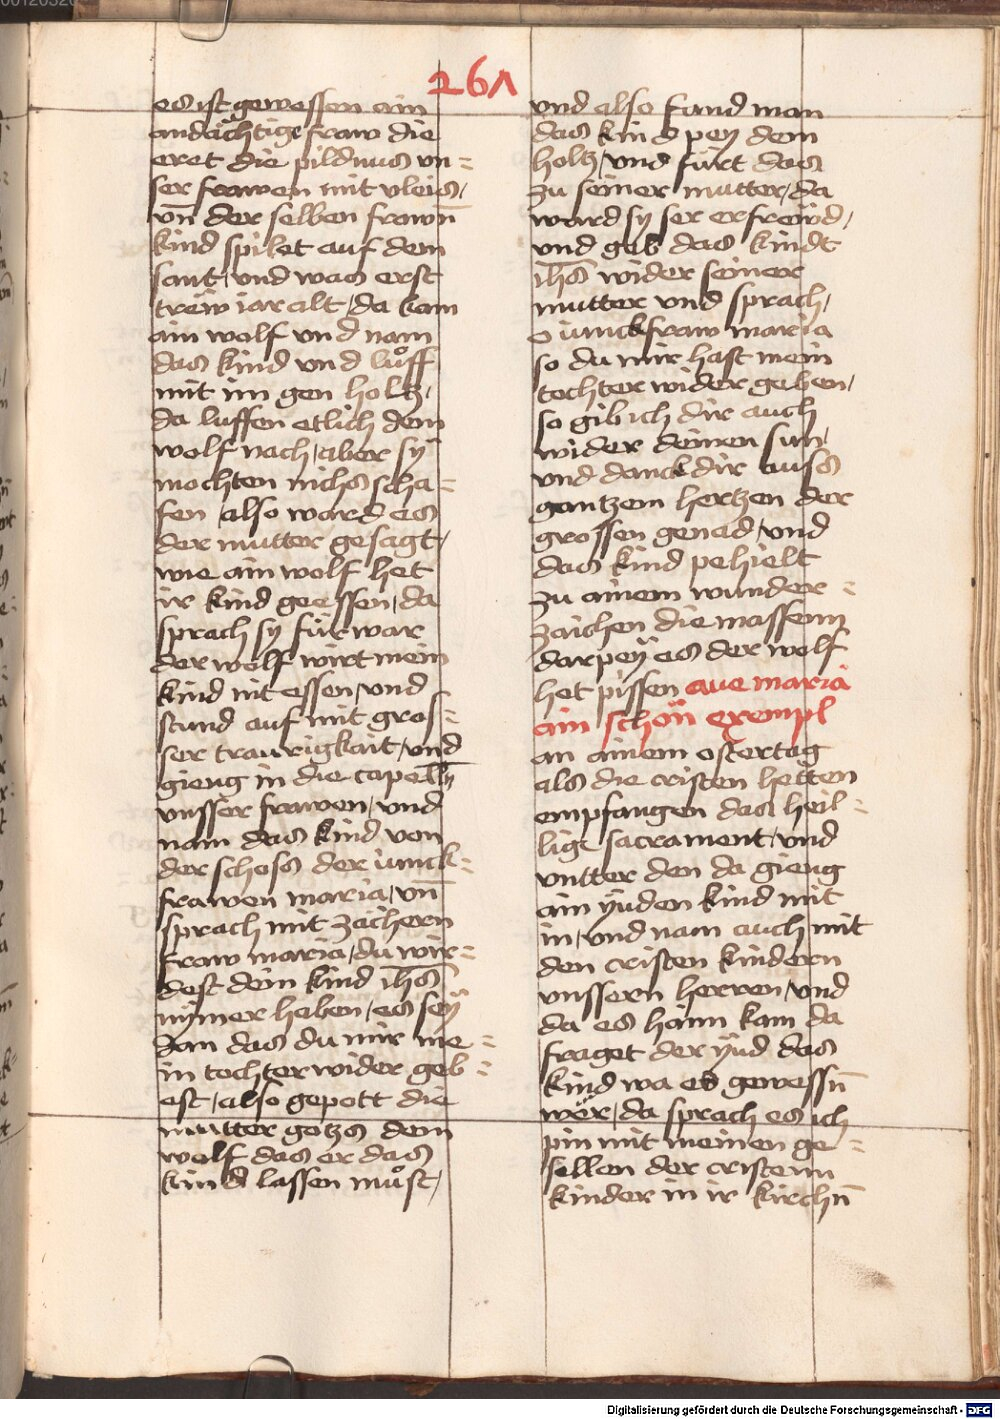 261
es ist gewessen ain
andächtige fraw die
eret die pildnus vn=
ser frawen mit vleis,
vn̄ der selben frawn̄
kind spilet auf dem
sant, vnd was erst
trew iar alt, da kam
ain wolf vnd nam
das kind vnd lůff
mit im gen holtz,
da luffen etlich dem
wolf nach, aber sy
mochten nichs scha=
fen, also ward es
der mutter gesagt,
wie ain wolf het
ir kind geessen, da
sprach sy fürwar
der wolf wirt mein
kind nit essen, vnd
stund auf mit gros=
ser traurigkait, vnd
gieng in die capelln̄
vnsser frawen, vnd
nam das kind von
der schoss der iunck=
frawen maria, vn̄
sprach mit zächern
fraw maria, du wir=
dest dein kind ih̄s
nymer heben, es seÿ
dan das du mir me=
in tochter wider geb=
est, also gepott die
mutter gotzs dem
wolf das er das
kind lassen můst,
vnd also fand man
das kind peÿ dem
holtz, vnd fürt das
zu seiner mutter, da
ward sy ser erfrewd,
vnd geb das kindt
ih̄s wider seiner
mutter vnd sprach,
o iunckfraw maria
so du mir hast mein
tochter wider geben,
so gib ich dir auch
wider deinen sun,
vnd danck dir auss
gantzem hertzen der
grossen genad, vnd
das kind pehielt
zu ainem wunder=
zaichen die massenn
darpeÿ es der wolf
het pissen aue maria
ain schön exempl
an ainem ostertag
als die cristen hetten
empfangen das heil=
lige sacrament, vnd
vntter den da gieng
ain ÿuden kind mit
in, vnd nam auch mit
den cristen kindern
vnssern herren, vnd
da es haim kam da
fraget der ÿud das
kind wa es gewessn̄
wër, da sprach es ich
pin mit meinen ge=
sellen der cristenn
kinder in ir kirchn̄
Digitalisierung gefördert durch die Deutsche Forschungsgemeinschaft - DFG